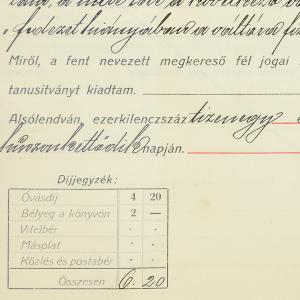 fedezet hiányában a váltóra
Miről, a fent nevezett megkereső fél jogai
tanusitványt kiadtam.
Alsólendván, ezerkilenczszáz tizenegy
huszonkettődik napján.
Dijjegyzék:
Óvásdij 4 20
Bélyeg a könyvön 2 —
Vitelbér . .
Másolat . .
Közlés és postabér . .
Összesen 6. 20